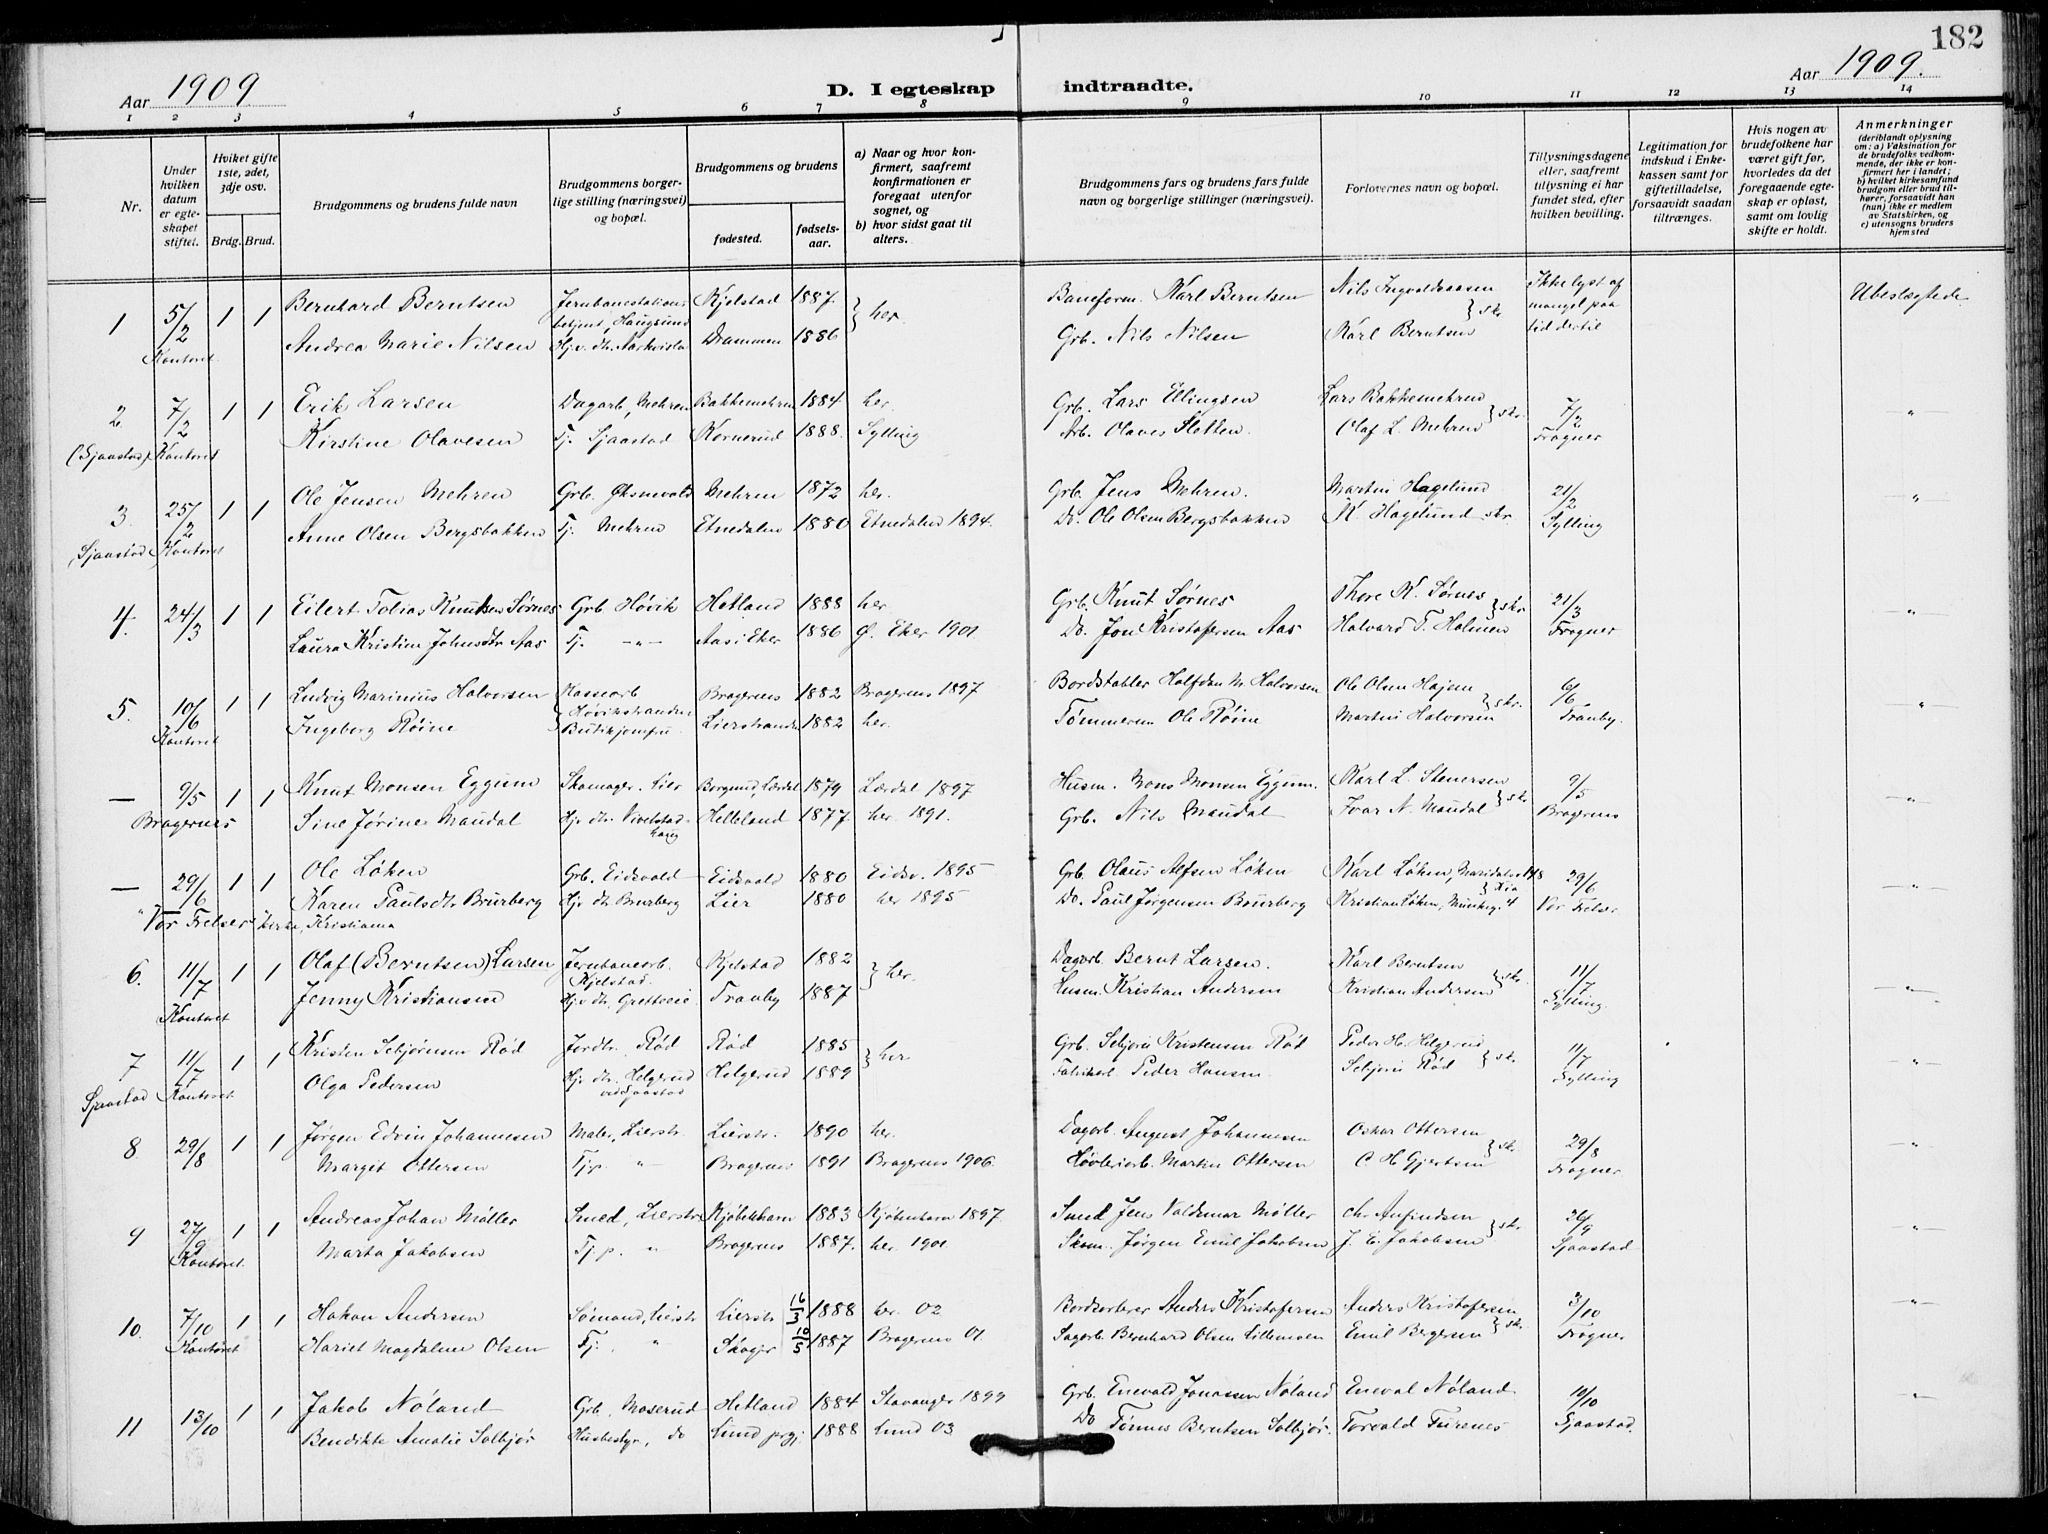 182
Aar 1909
D. I egteskap indtraadte.
Aar 1909.
1 2 3 4 5 6 7 8 9 10 11 12 13 14
Nr.
Under hvilken datum er egteskapet stiftet.
Hviket gifte 1ste, 2det, 3dje osv.
Brdg. Brud.
Brudgommens og brudens fulde navn
Brudgommens borgerlige stilling (næringsvei) og bopæl.
Brudgommens og brudens
fødested.
fødselsaar.
a) Naar og hvor konfirmert, saafremt konfirmationen er foregaat utenfor sognet, og
b) hvor sidst gaat til alters.
Brudgommens fars og brudens fars fulde navn og borgerlige stillinger (næringsvei).
Forlovernes navn og bopæl.
Tillysningsdagene eller, saafremt tillysning ei har fundet sted, efter hvilken bevilling.
Legitimation for indskud i Enkekassen samt for giftetilladelse, forsaavidt saadan tiltrænges.
Hvis nogen av brudefolkene har været gift før, hvorledes da det foregaaende egteskap er opløst, samt om lovlig skifte er holdt.
Anmerkninger
(deriblandt oplysning om: a) Vaksination for de brudefolks vedkommende, der ikke er konfirmert her i landet; b) hvilket kirkesamfund brudgom eller brud tilhører, forsaavidt han (hun) ikke er medlem av Statskirken, og c) utensogns bruders hjemsted
1 5/2 1 1 Bernhard Berntsen Jernbanestationsbetjent, Haugsund Kjelstad 1887. } her. Baneform. Karl Berntsen Nils Ingvaldsaasen } skr Ikke lyst af mangel paa tid dertil Ubeslægtede
Kontoret Andrea Marie Nilsen Hj. v. dtr. Drammen 1886 Grb. Nils Nilsen Karl Berntsen
2 7/2 1 1 Erik Larsen Dagarb, Mehren Bakkemehren 1884 her. Grb. Lars Ellingsen Lars Bakkemehren } skr. 7/2 "
(Sjaastad) Kontoret Kirstine Olavesen Tj. Sjaastad Kornerud 1888. Sylling Arb. Olaves Sletten. Olaf L. Mehren Frogner
3. 25/2 1 1 Ole Jensen Mehren Grb. Øksnevald Mehren 1872 her. Grb. Jens Mehren. Martin Hagelund 21/2 "
(Sjaastad) Kontoret Anne Olsen Bergsbakken Tj. Mehren Etnedalen 1880 Etnedalen 1894. Do. Ole Olsen Bergsbakken K Hagelund skr Sylling
4. 24/3 1 1 Eilert Tobias Knutsen Sørnes Grb Høvik Hetland 1888 her Grb. Knut Sørnes Thore K. Sørnes } skr 21/3 "
Laura Kristine Johnsdtr Aas Tj. -"- Aas i Eker 1886 Ø. Eker 1901 Do. Jon Kristofersen Aas Halvard T. Holmen Frogner
5. 10/6 1 1 Ludvig Marinius Halvorsen Kassearb Høvikstranden Bragernes 1882 Bragernes 1897 Bordstabler Halfdan M Halvorsen Ole Olsen Hajem } skr. 6/6 "
Kontoret Ingeborg Røine Butikjomfru Lierstranden 1882 her. Tømmerm Ole Røine Martin Halvorsen Tranby.
— 9/5 1 1 Knut Monsen Eggum Skomager. Lier Borgund, Lærdal 1879 Lærdal 1897 Husm. Mons Monsen Eggum. Karl L. Stenersen } skr 9/5 -"-
Bragernes Sine Jørine Maudal Hj. dtr. Vivelstadhaug Helleland 1877 her. 1891. Grb. Nils Maudal Ivar N. Maudal Bragernes
— 29/6 1 1 Ole Løken Grb. Eidsvold Eidsvold 1880 Eidsv. 1895 Grb Olaus Alfsen Løken Karl Løken, } Kra 29/6 -"-
Karen Paulsdtr Brurberg Hj. dtr Brurberg Lier 1880 her 1895 Do. Paul Jørgensen Brurberg Kristian Løken, Munkeg. 4 Vor Frelser
"Vor Frelser" kirke, Kristiania
6. 11/7 1 1 Olaf (Berntsen) Larsen Jernbanearb. Kjelstad Kjelstad 1882 } her. Dagarb. Bernt Larsen. Karl Berntsen } skr. 11/7 -"-
Kontoret Jenny Kristiansen Hj. v. dtr. Gretteveie Tranby 1887 Husm. Kristian Andersen Kristian Andersen Sylling.
7 11/7 1 1 Kristen Sebjørnsen Rød Jordbr. Rød Rød 1885 } her Grb. Sebjørn Kristensen Rød Peder H. Helgerud } skr. 11/7 "
Sjaastad Kontoret Olga Pedersen Hj. dtr. Helgerud ved Sjaastad Helgerud 1889 Fabrikarb. Peder Hansen Sebjørn Rød Sylling
8 29/8 1 1 Jørgen Edvin Johannesen Maler, Lierstr. Lierstr. 1890 her. Dagarb. August Johannesen Oskar Ottersen } skr 29/8 "
Margit Ottersen Tjp. " Bragernes 1891 Bragernes 1906. Høvleriarb. Martin Ottersen C. H Gjertsen Frogner
9 27/9 1 1 Andreas Johan Møller Smed, Lierstr Kjøbenhavn 1883 Kjøbenhavn 1897 Smed Jens Valdemar Møller Chr Anfindsen } skr 26/9 "
Kontoret Marta Jakobsen Tjp. " Bragernes 1887. her 1901 Skom. Jørgen Emil Jakobsen J. E. Jakobsen Sjaastad
10. 7/10 1 1 Hakon Andersen Sømand, Lierstr Lierstr 16/3 1888 her. 02 Bordsorterer Anders Kristofersen Anders Kristofersen } skr. 3/10 "
Kontoret Hariet Magdalene Olsen Tj. " Skoger 10/5 1887 Bragernes 01. Sagarb. Bernhard Olsen Lillemoen Emil Bergersen Frogner
11 13/10 1 1 Jakob Nøland Grb. Moserud Hetland 1884 Stavanger 1899 Grb. Enevald Jonassen Nøland Eneval Nøland 10/10 "
Bendikte Amalie Solbjør Husbestyr, do Lund prgj. 1888 Lund 03 Do Tønnes Berntsen Solbjør. Torvald Furenes Sjaastad.